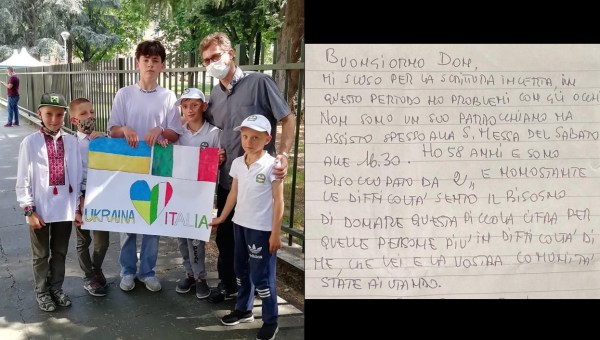 UKRAINA ITALIA
BUONGIORNO DON,
MI SCUSO PER LA SCRITTURA INCERTA, IN
QUESTO PERIODO HO PROBLEMI CON GLI OCCHI
NON SONO UN SUO PARROCCHIANO MA
ASSISTO SPESSO ALLA S. MESSA DEL SABATO
ALLE 16.30. HO 58 ANNI E SONO
DISOCCUPATO DA 2,, E NONOSTANTE
LE DIFFICOLTÀ SENTO IL BISOGNO
DI DONARE QUESTA PICCOLA CIFRA PER
QUELLE PERSONE PIU' IN DIFFICOLTA' DI
ME, CHE LEI E LA VOSTRA COMUNITA'
STATE AIUTANDO.